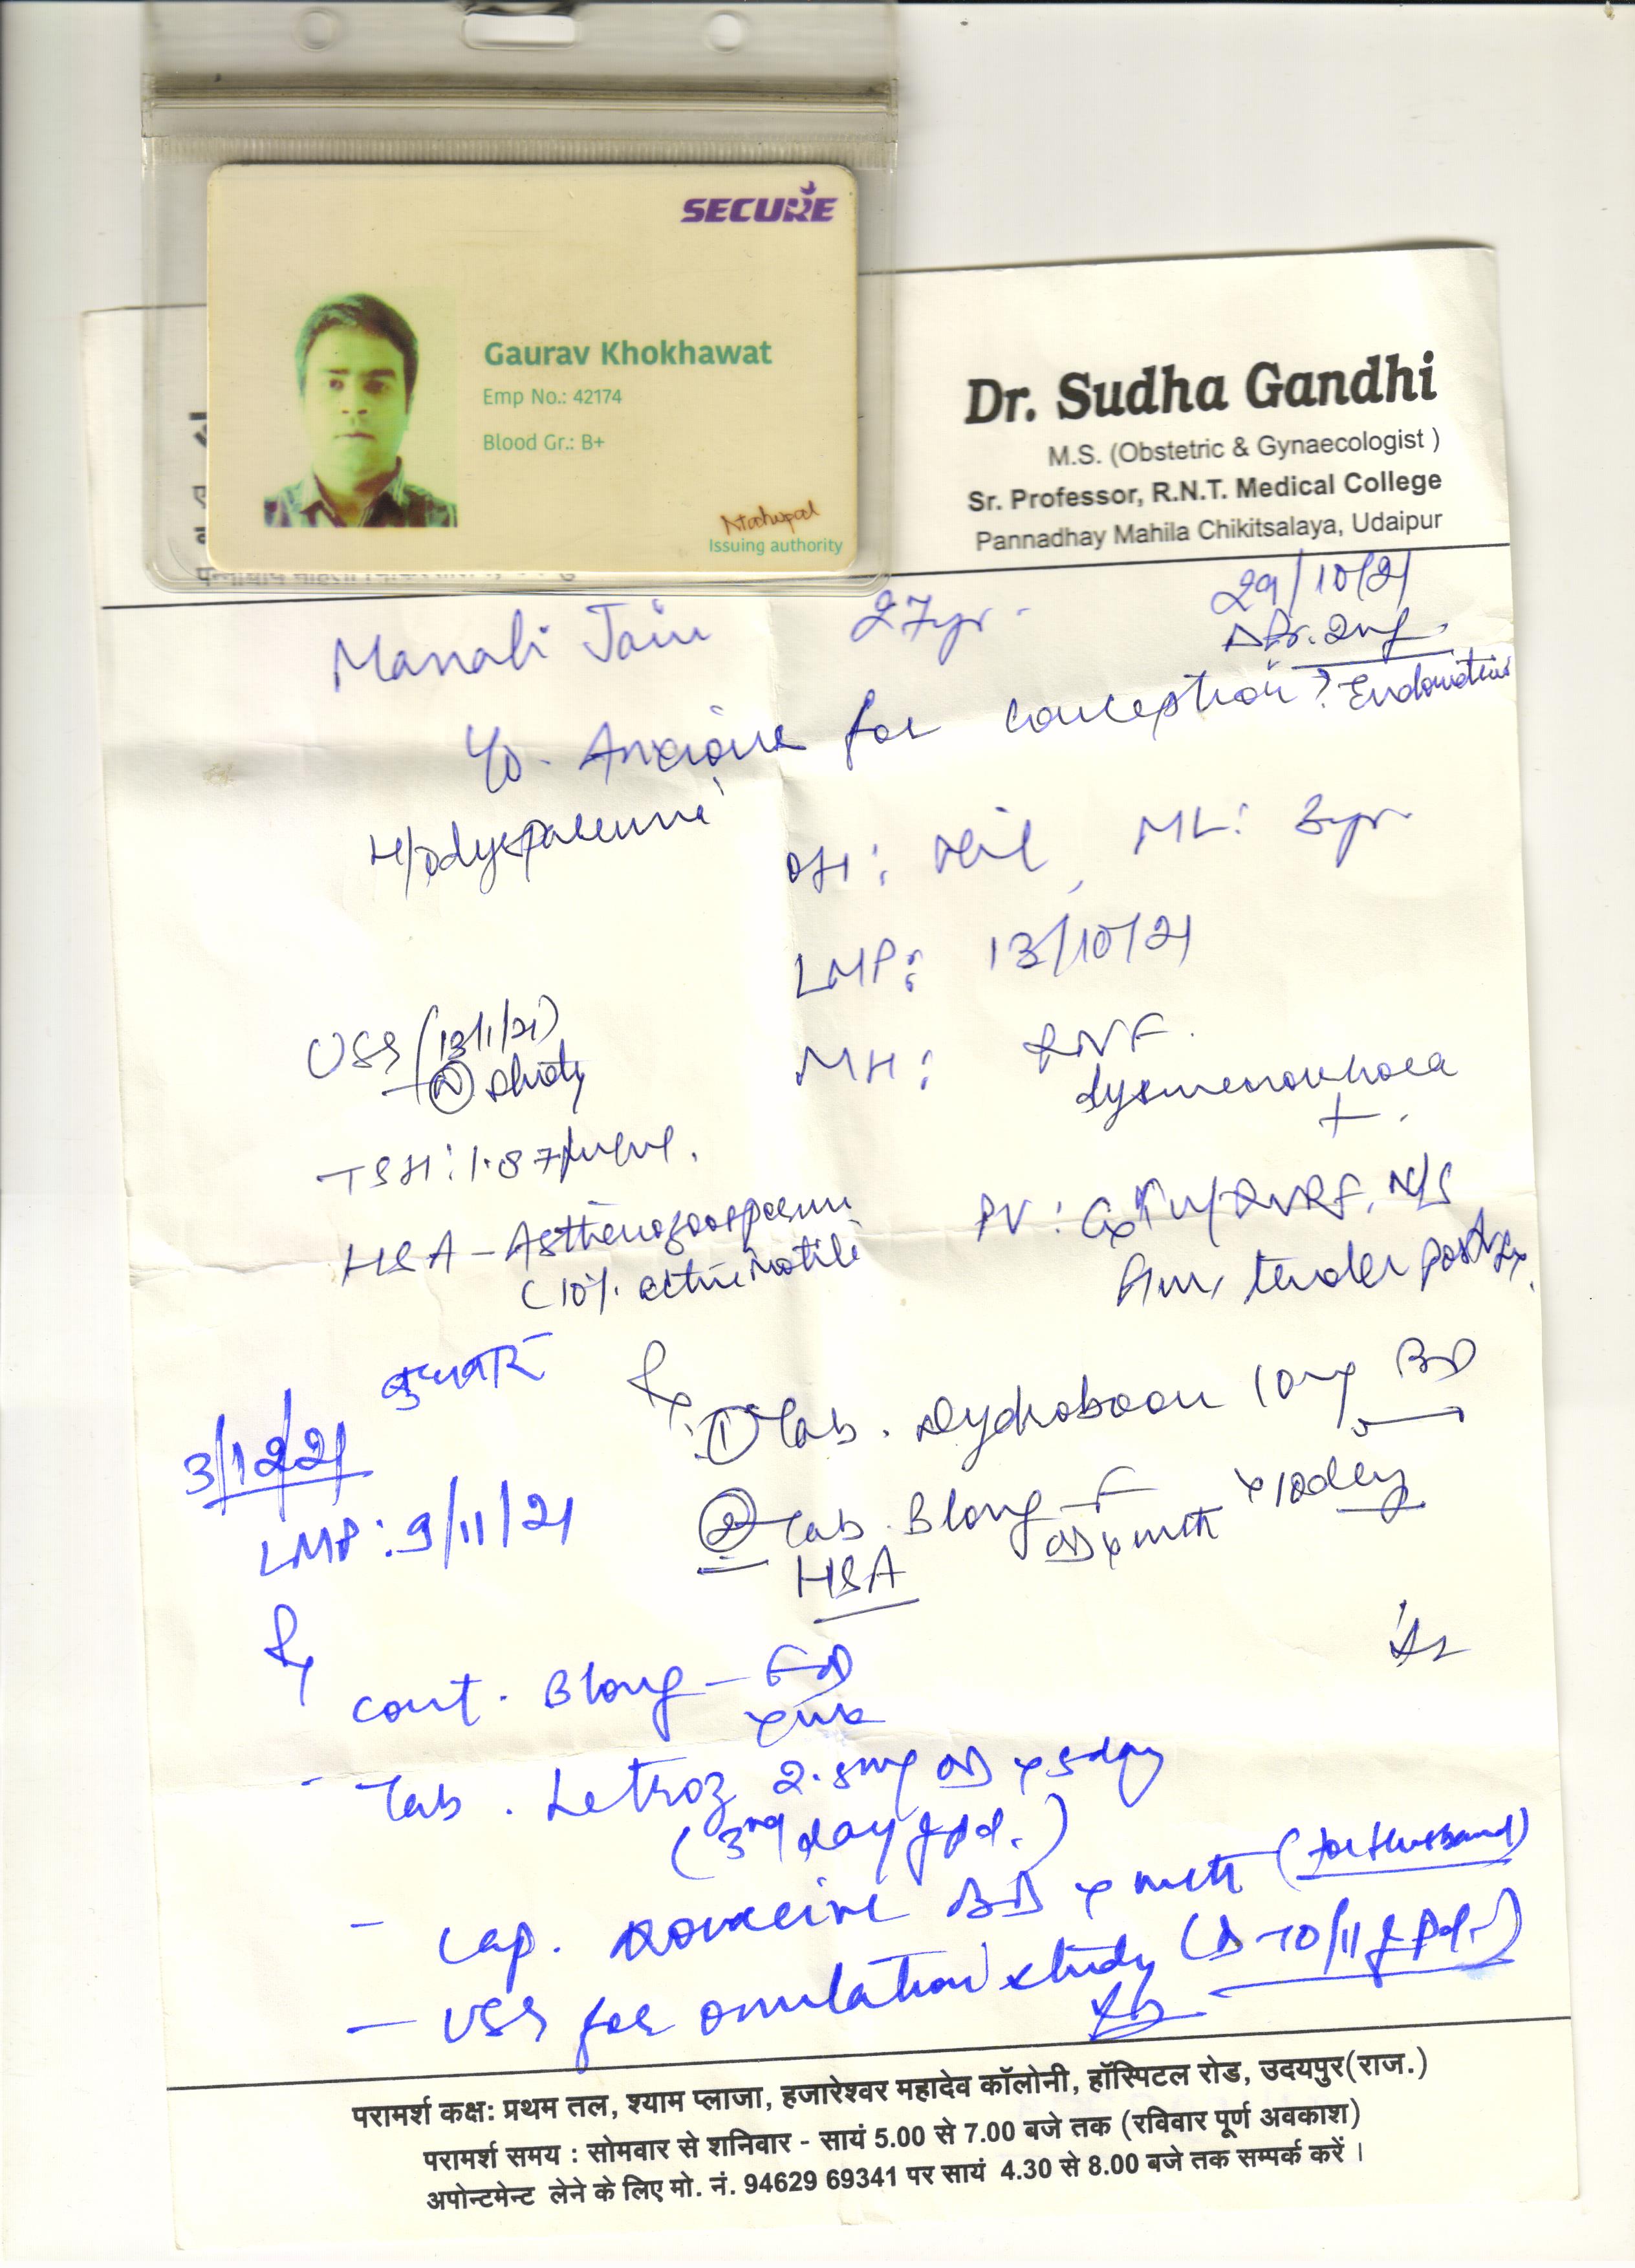 SECURE
Gaurav Khokhawat
Emp No.: 42174
Blood Gr.: B+
Issuing authority
Dr. Sudha Gandhi
M.S. (Obstetric & Gynaecologist )
Sr. Professor, R.N.T. Medical College
Pannadhay Mahila Chikitsalaya, Udaipur
29/10/21
Manali Jain 27yr.
Anxious for conception ?
OH: Nil, ML: 3yr.
LMP: 13/10/21
USS (13/11/21)
(N) study
MH:
dysmenorrhoea
+
TSH: 1.87
HSA - Asthenozoospermi
(10% active motile
PV:
tender post
Rx
① Tab. Dydroboon 10mg BD
x 10day
② Tab. Blong-F
OD x mth
HSA
3/12/21
LMP: 9/11/21
Rx
cont. Blong-F OD
- Tab. Letroz 2.5mg OD x 5day
(3rd day of pd.)
- Cap. BD x mth (for Husband)
- USS for ovulation study (D-10/11 of pd.)
परामर्श कक्ष: प्रथम तल, श्याम प्लाजा, हजारेश्वर महादेव कॉलोनी, हॉस्पिटल रोड, उदयपुर(राज.)
परामर्श समय : सोमवार से शनिवार - सायं 5.00 से 7.00 बजे तक (रविवार पूर्ण अवकाश)
अपोन्टमेन्ट लेने के लिए मो. नं. 94629 69341 पर सायं 4.30 से 8.00 बजे तक सम्पर्क करें ।